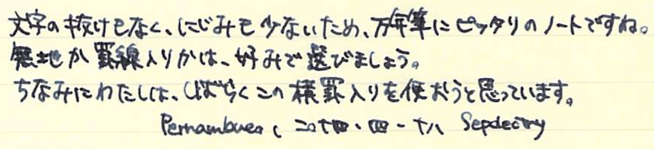 文字の抜けもなく、にじみも少ないため、万年筆にピッタリのノートですね。
無地か罫線入りかは、好みで選びましょう。
ちなみにわたしは、しばらくこの横罫入りを使おうと思っています。
二〇十四・四・十八